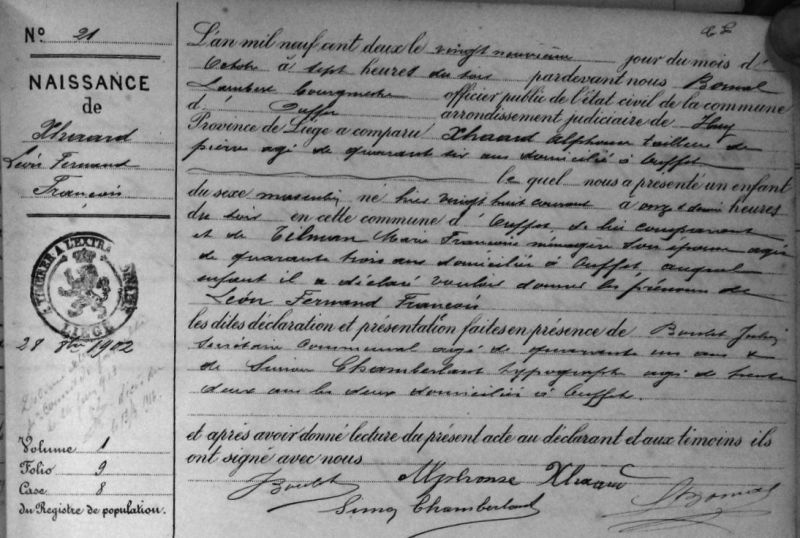 N° 21
NAISSANCE
de
Xhaard
Léon Fernand
François
LIEGE
28 8bre 1902
Volume 1
Folio 9
Case 8
du Registre de population.
L'an mil neuf cent deux le vingt neuvième jour du mois d'
Octobre à sept heures du soir pardevant nous Bomal
Lambert Bourgmestre officier public de l'état civil de la commune
d' Ouffet arrondissement judiciaire de Huy
Province de Liége a comparu Xhaard Alphonse tailleur de
pierre agé de quarante six ans domicilié à Ouffet
le quel nous a présenté un enfant
du sexe masculin né hier vingt huit courant à onze & demie heures
du soir en cette commune d' Ouffet, de lui comparant
et de Tilman Marie Françoise ménagère son épouse agée
de quarante trois ans domiciliée à Ouffet auquel
enfant il a déclaré vouloir donner les prénoms de
Léon Fernand François
les dites déclaration et présentation faites en présence de Boulet
secrétaire communal agé de quarante un ans &
de Simon Chamberlant typographe agé de trente
deux ans les deux domiciliés à Ouffet.
et après avoir donné lecture du présent acte au déclarant et aux témoins ils
ont signé avec nous
Boulet Alphonse Xhaard LBomal
Simon Chamberlant